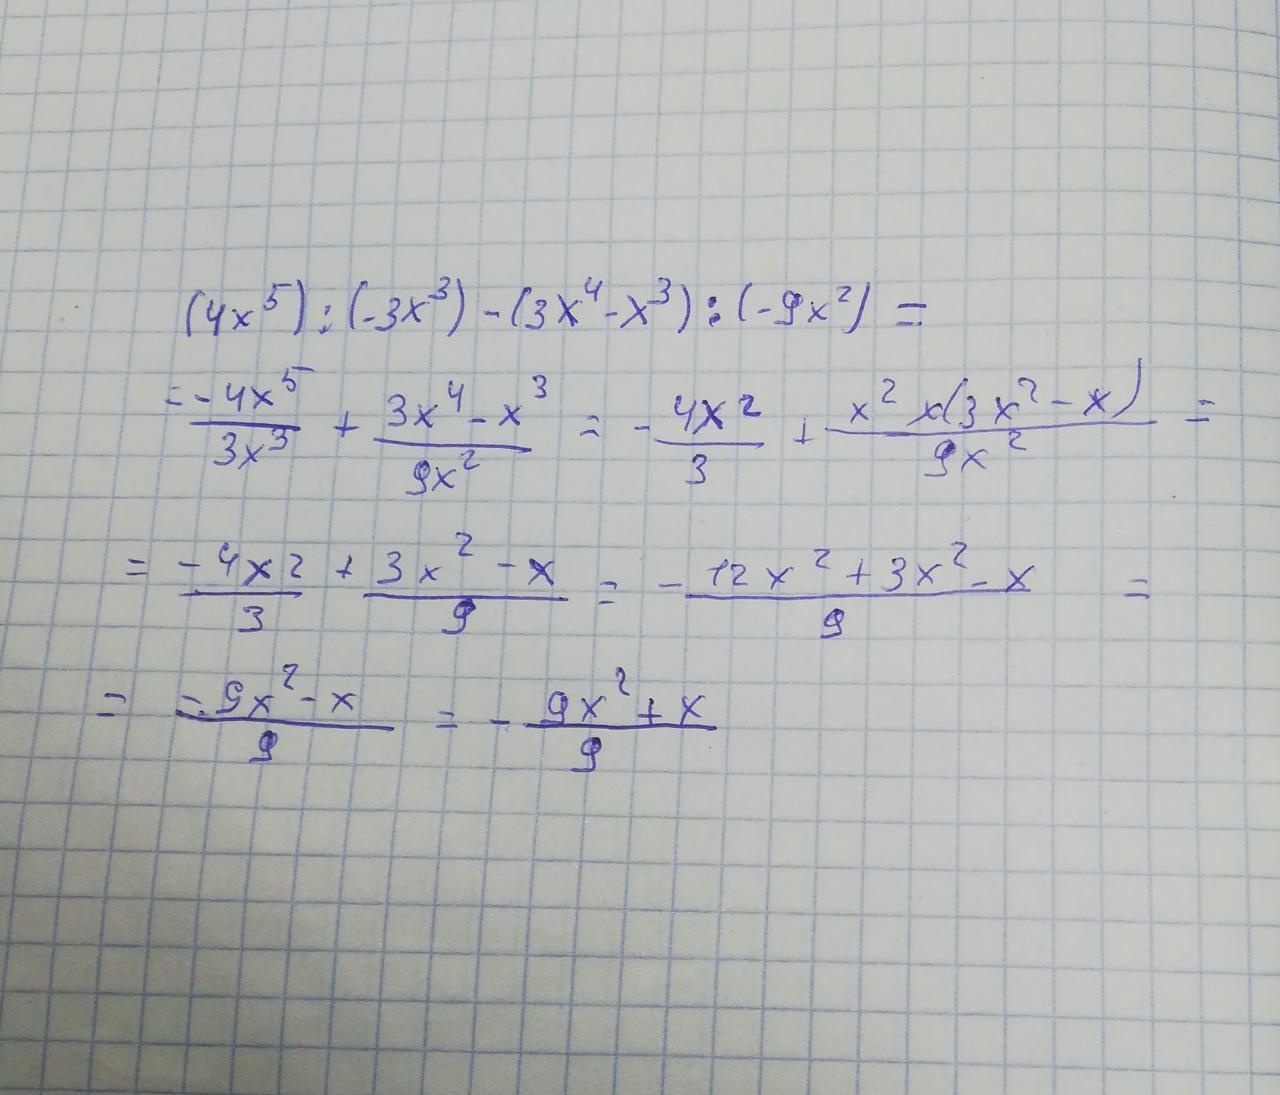 (4x⁵) : (-3x³) - (3x⁴ - x³) : (-9x²) =
= -4x⁵/3x³ + (3x⁴ - x³)/9x² = - 4x²/3 + x² x(3x² - x)/9x² =
= -4x²/3 + (3x² - x)/9 = - (12x² + 3x² - x)/9 =
= (-9x² - x)/9 = - (9x² + x)/9